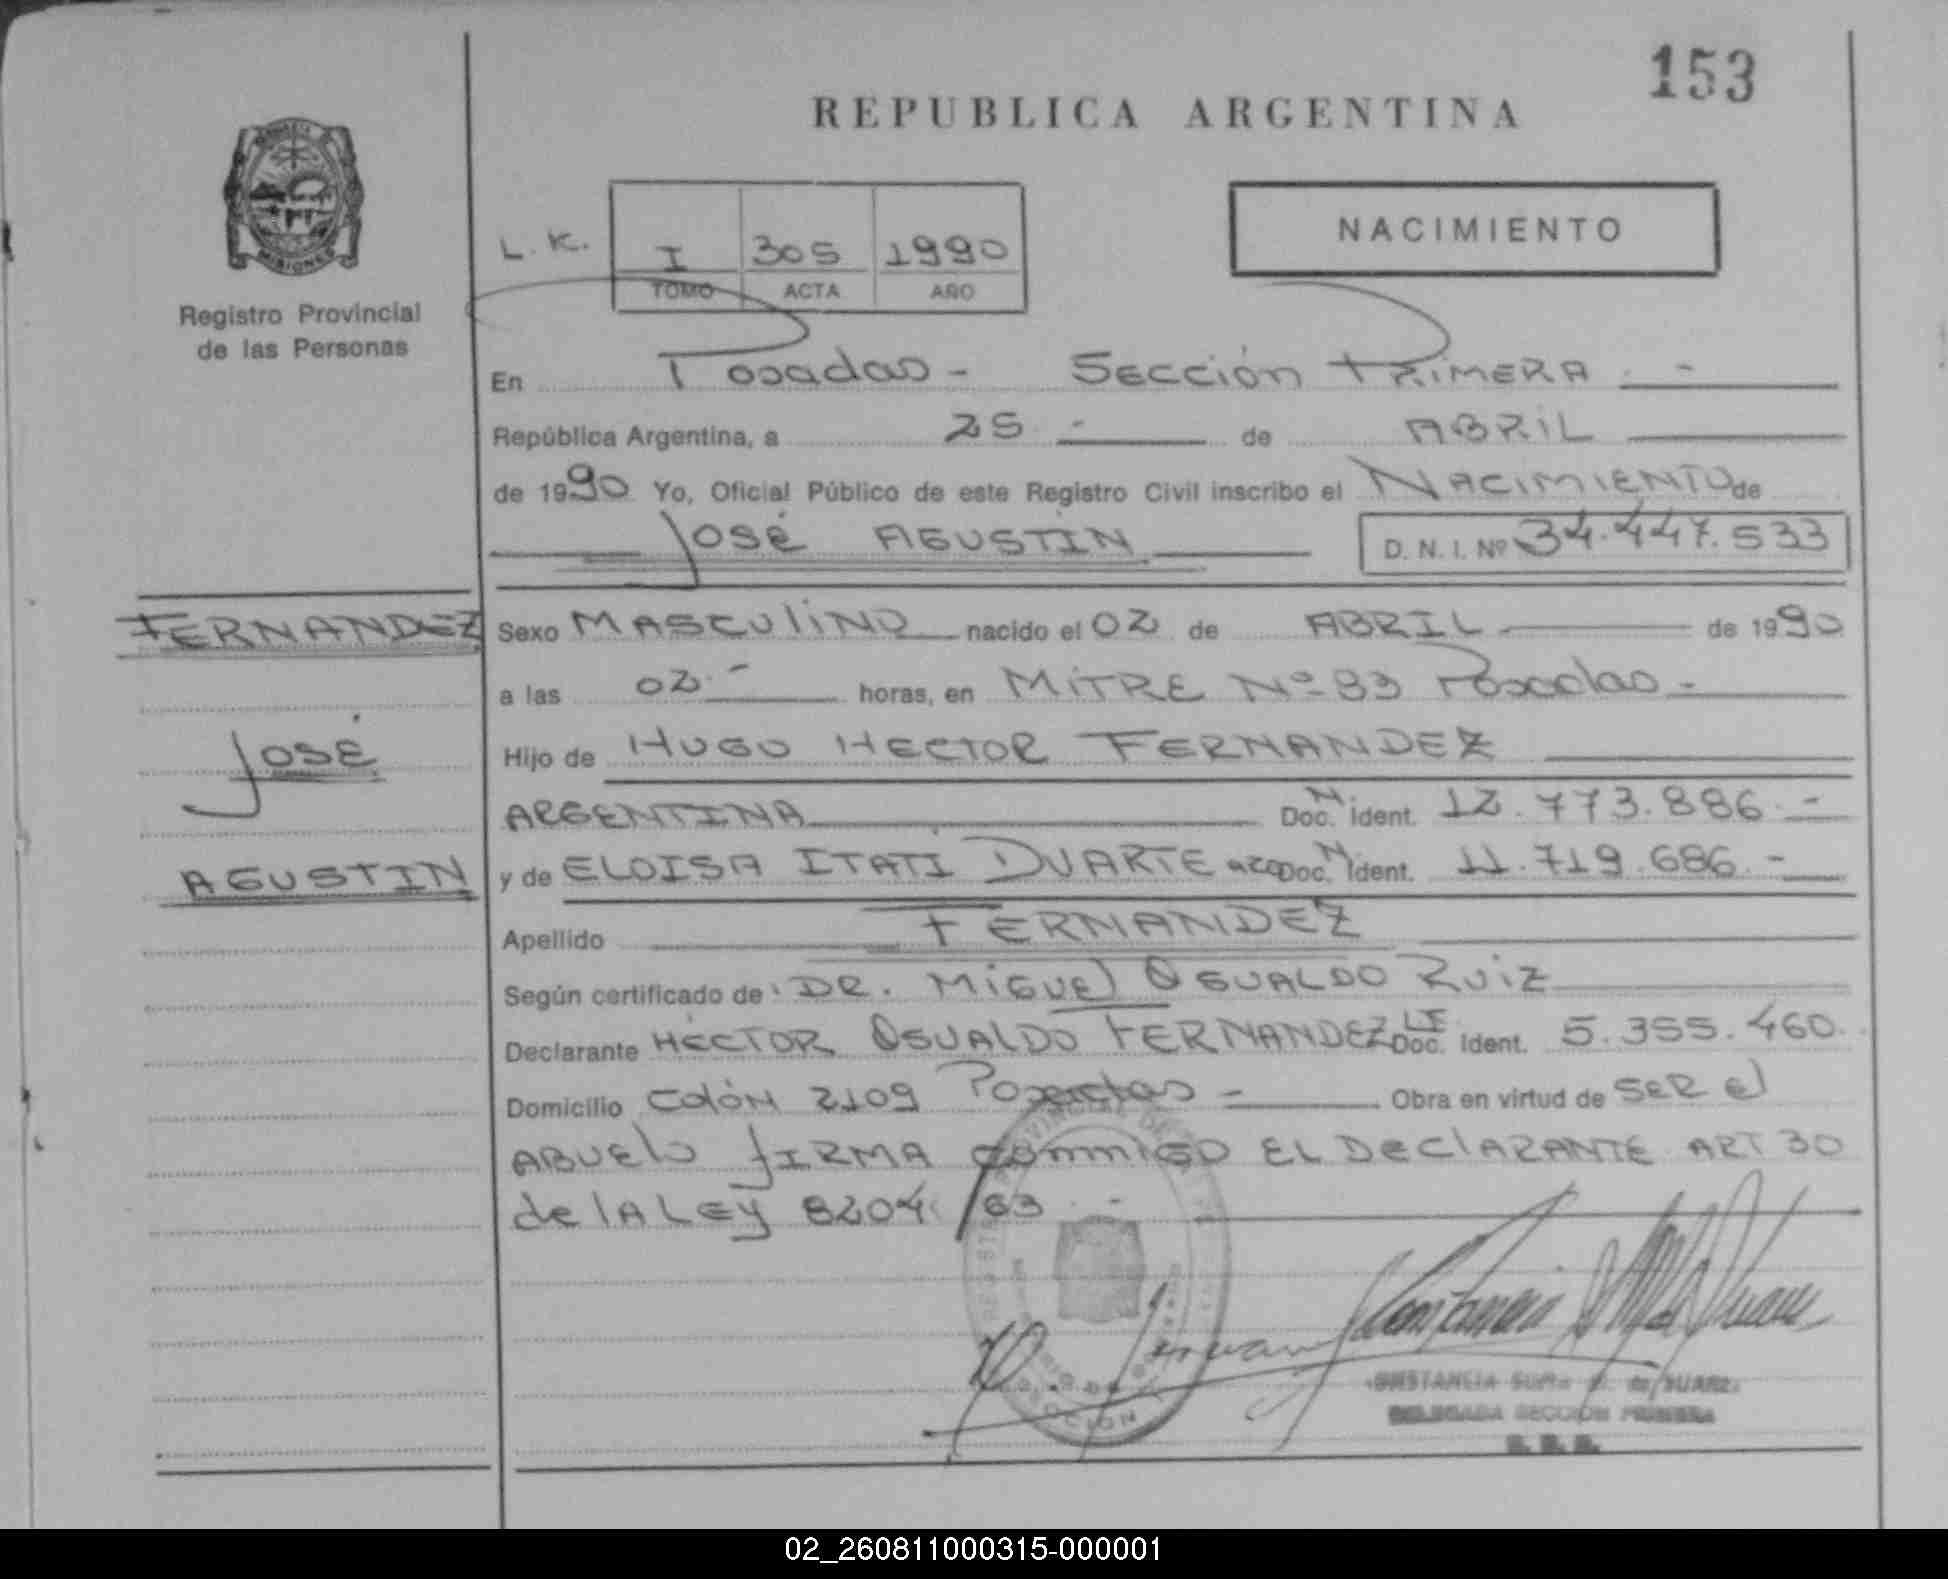 153
REPUBLICA ARGENTINA
NACIMIENTO
L. K. I 305 1990
TOMO ACTA AÑO
MISIONES
Registro Provincial
de las Personas
En Posadas - Sección PRIMERA -
República Argentina, a 25 - de ABRIL
de 1990 Yo, Oficial Público de este Registro Civil inscribo el NACIMIENTO de
José AGUSTIN D. N. I. Nº 34.447.533
FERNANDEZ
Sexo MASCULINO nacido el 02 de ABRIL de 1990
a las 02.- horas, en MITRE Nº 83 Posadas -
José
Hijo de HUGO HECTOR FERNANDEZ
ARGENTINA Doc. N Ident. 12.773.886.-
AGUSTIN
y de ELOISA ITATI DUARTE Doc. N Ident. 11.719.686.-
Apellido FERNANDEZ
Según certificado de: DR. MIGUEL OSUALDO RUIZ
Declarante HÉCTOR OSUALDO FERNANDEZ LE Doc. Ident. 5.355.460.
Domicilio COLÓN 2109 Posadas - Obra en virtud de SER el
ABUELO FIRMA conmigo EL DECLARANTE ART 30
de LA LEY 8204/63.-
DELEGADA SECCION PRIMERA
02_260811000315-000001